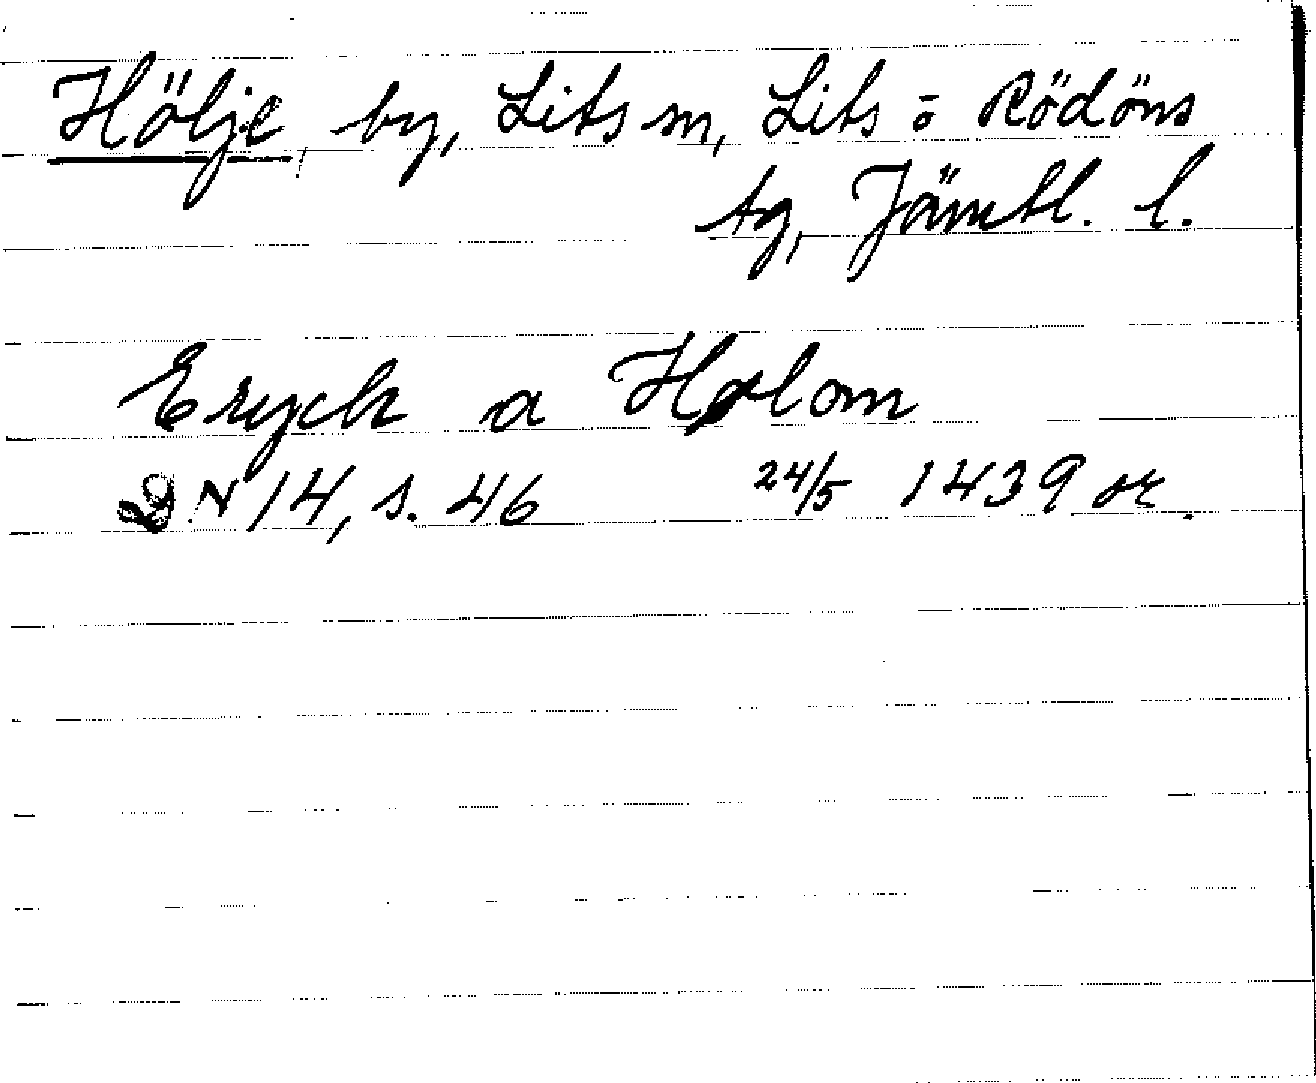 Hölje, by, Lits sn, Lits o Rödöns
tg, Jämtl. l.
Eryck a Hølom
DN 14, s. 46 24/5 1439 or.